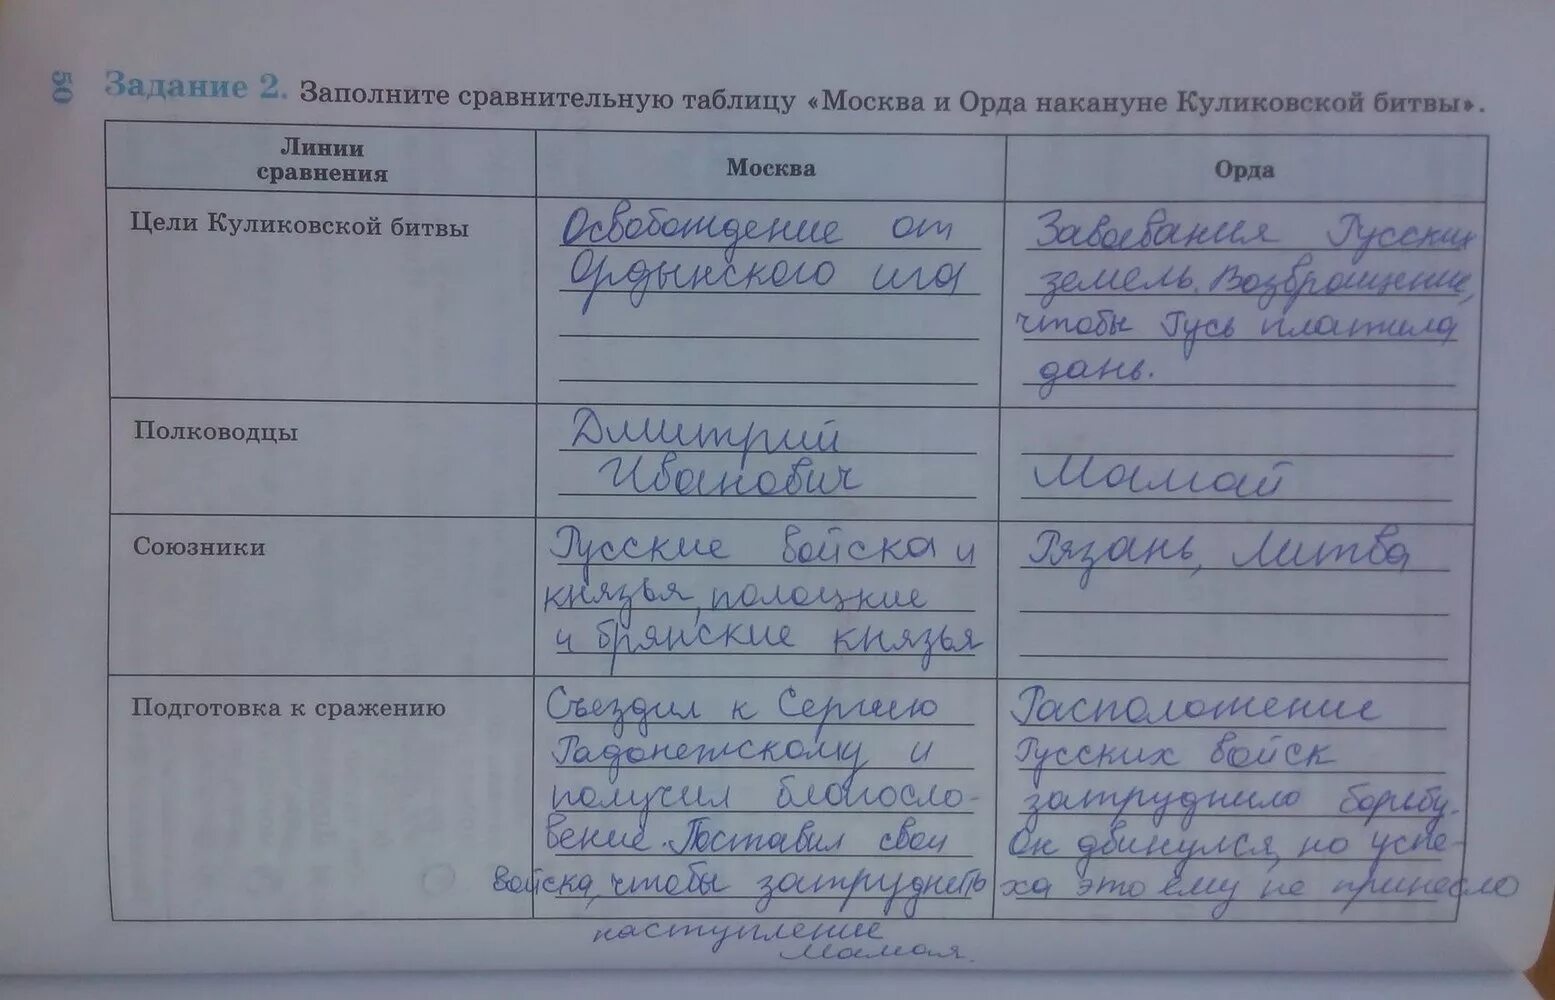 50
Задание 2. Заполните сравнительную таблицу «Москва и Орда накануне Куликовской битвы».
Линии
сравнения
Москва
Орда
Цели Куликовской битвы
Освобождение от
Ордынского ига
Завоевания Русских
земель. Возвращение,
чтобы Русь платила
дань.
Полководцы
Дмитрий
Иванович
Мамай
Союзники
Русские войска и
князья, полоцкие
и брянские князья
Рязань, Литва
Подготовка к сражению
Съездил к Сергию
Радонежскому и
получил благосло-
вение. Поставил свои
войска, чтобы затруднеть
наступление
Мамая.
Расположение
Русских войск
затруднило борьбу.
Он двинулся, но успе-
ха это ему не принесло